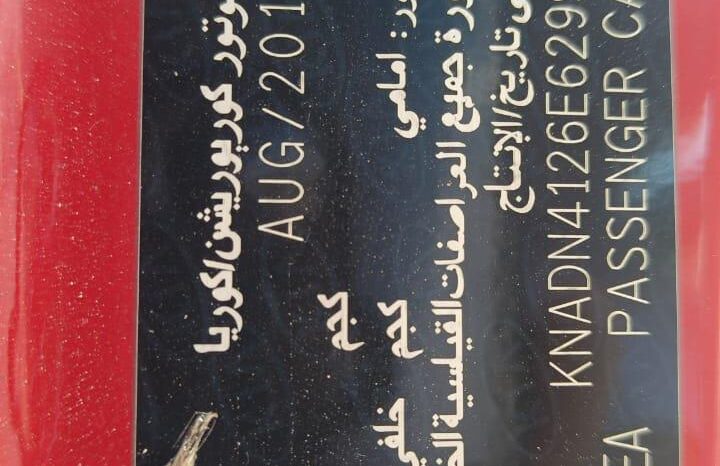 موتور كوربوريشن/كوريا
AUG/201
كجم
ور: امامي
كجم خلفي
ورة جميع المراصفات القيلسية
ى تاريخ/الإنتاج
KNADN4126E629
PASSENGER CA
EA